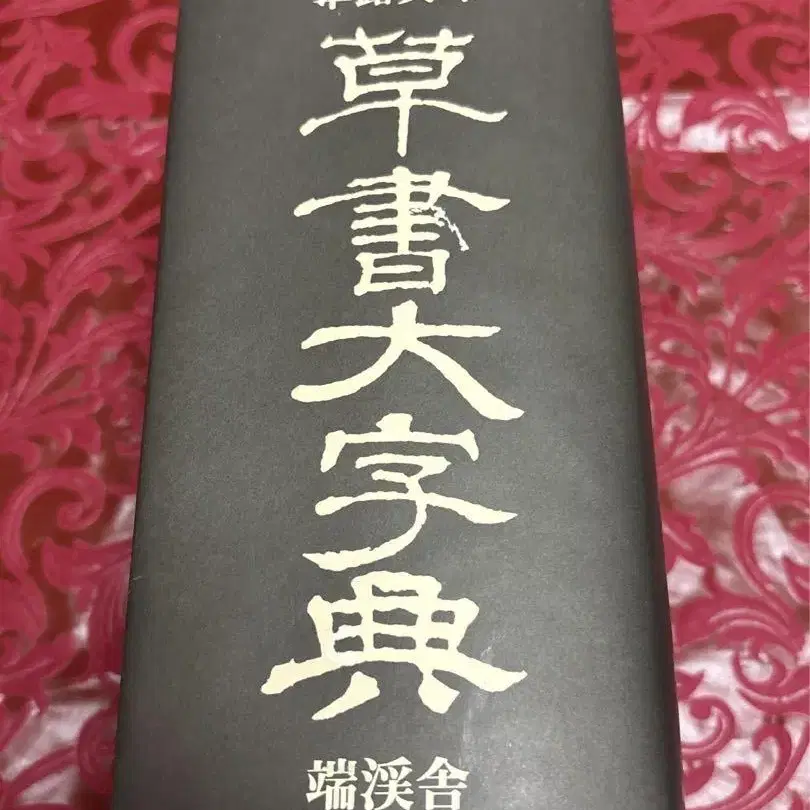 草書大字典
端渓舎